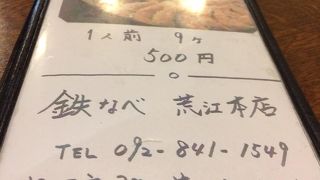 1人前 9ヶ
500円
鉄なべ 荒江本店
TEL 092-841-1549